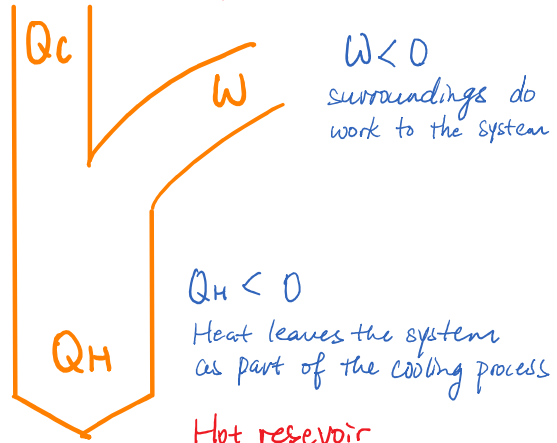 Qc
W
W<0
surroundings do
work to the system
QH < 0
Heat leaves the system
as part of the cooling process
QH
Hot resevoir